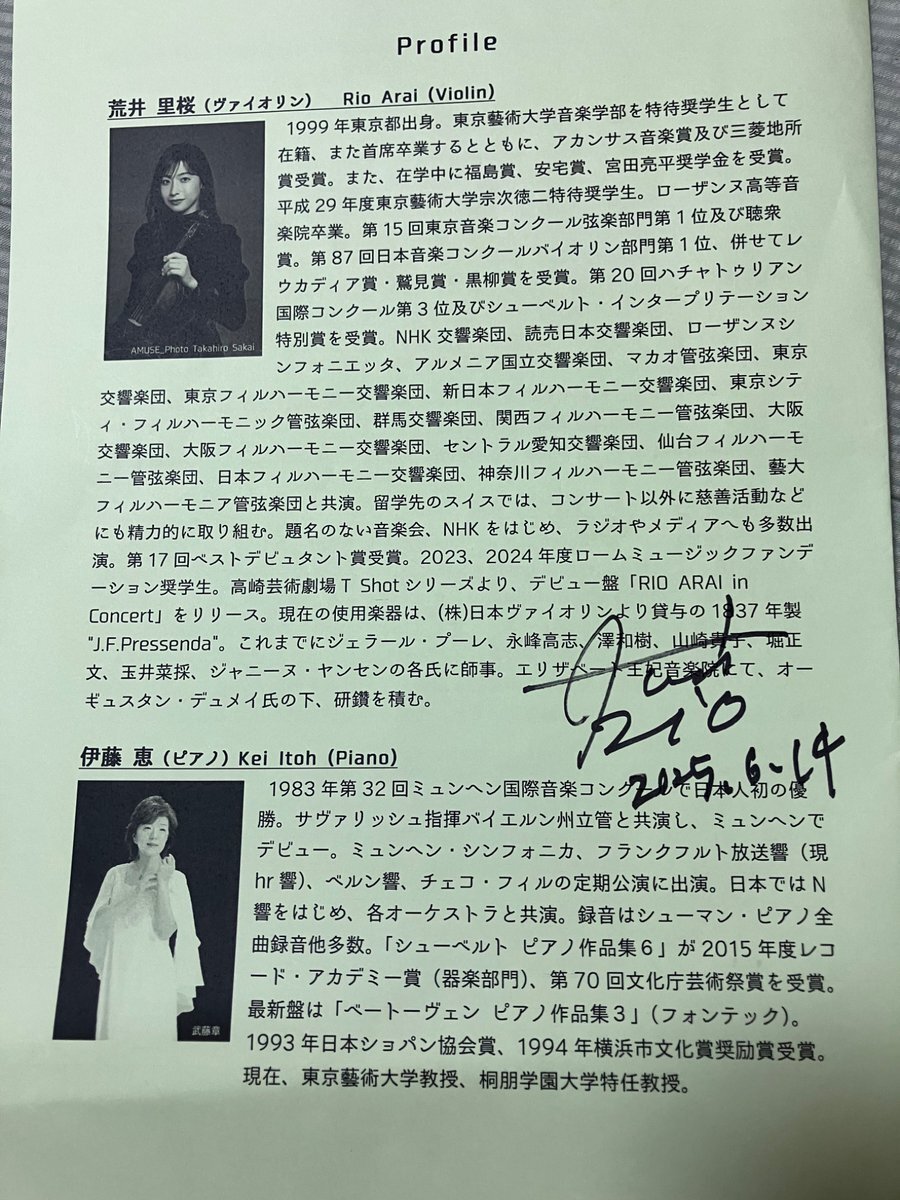 Profile
荒井 里桜（ヴァイオリン） Rio Arai (Violin)
1999年東京都出身。東京藝術大学音楽学部を特待奨学生として
在籍、また首席卒業するとともに、アカンサス音楽賞及び三菱地所
賞受賞。また、在学中に福島賞、安宅賞、宮田亮平奨学金を受賞。
平成29年度東京藝術大学宗次徳二特待奨学生。ローザンヌ高等音
楽院卒業。第15回東京音楽コンクール弦楽部門第1位及び聴衆
賞。第87回日本音楽コンクールバイオリン部門第1位、併せてレ
ウカディア賞・鷲見賞・黒柳賞を受賞。第20回ハチャトゥリアン
国際コンクール第3位及びシューベルト・インタープリテーション
特別賞を受賞。NHK交響楽団、読売日本交響楽団、ローザンヌシ
ンフォニエッタ、アルメニア国立交響楽団、マカオ管弦楽団、東京
交響楽団、東京フィルハーモニー交響楽団、新日本フィルハーモニー交響楽団、東京シテ
ィ・フィルハーモニック管弦楽団、群馬交響楽団、関西フィルハーモニー管弦楽団、大阪
交響楽団、大阪フィルハーモニー交響楽団、セントラル愛知交響楽団、仙台フィルハーモ
ニー管弦楽団、日本フィルハーモニー交響楽団、神奈川フィルハーモニー管弦楽団、藝大
フィルハーモニア管弦楽団と共演。留学先のスイスでは、コンサート以外に慈善活動など
にも精力的に取り組む。題名のない音楽会、NHKをはじめ、ラジオやメディアへも多数出
演。第17回ベストデビュタント賞受賞。2023、2024年度ロームミュージックファンデ
ーション奨学生。高崎芸術劇場T Shotシリーズより、デビュー盤「RIO ARAI in
Concert」をリリース。現在の使用楽器は、(株)日本ヴァイオリンより貸与の1837年製
"J.F.Pressenda"。これまでにジェラール・プーレ、永峰高志、澤和樹、山崎貴子、堀正
文、玉井菜採、ジャニーヌ・ヤンセンの各氏に師事。エリザベート王妃音楽院にて、オー
ギュスタン・デュメイ氏の下、研鑽を積む。
AMUSE_Photo Takahiro Sakai
RIO
2025.6.14
伊藤 恵（ピアノ）Kei Itoh (Piano)
1983年第32回ミュンヘン国際音楽コンクールで日本人初の優
勝。サヴァリッシュ指揮バイエルン州立管と共演し、ミュンヘンで
デビュー。ミュンヘン・シンフォニカ、フランクフルト放送響（現
hr響）、ベルン響、チェコ・フィルの定期公演に出演。日本ではN
響をはじめ、各オーケストラと共演。録音はシューマン・ピアノ全
曲録音他多数。「シューベルト ピアノ作品集６」が2015年度レコ
ード・アカデミー賞（器楽部門）、第70回文化庁芸術祭賞を受賞。
最新盤は「ベートーヴェン ピアノ作品集３」（フォンテック）。
1993年日本ショパン協会賞、1994年横浜市文化賞奨励賞受賞。
現在、東京藝術大学教授、桐朋学園大学特任教授。
武藤章